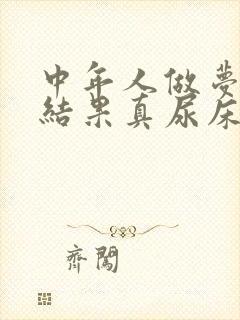 中年人做夢
結果真尿床
齊闖